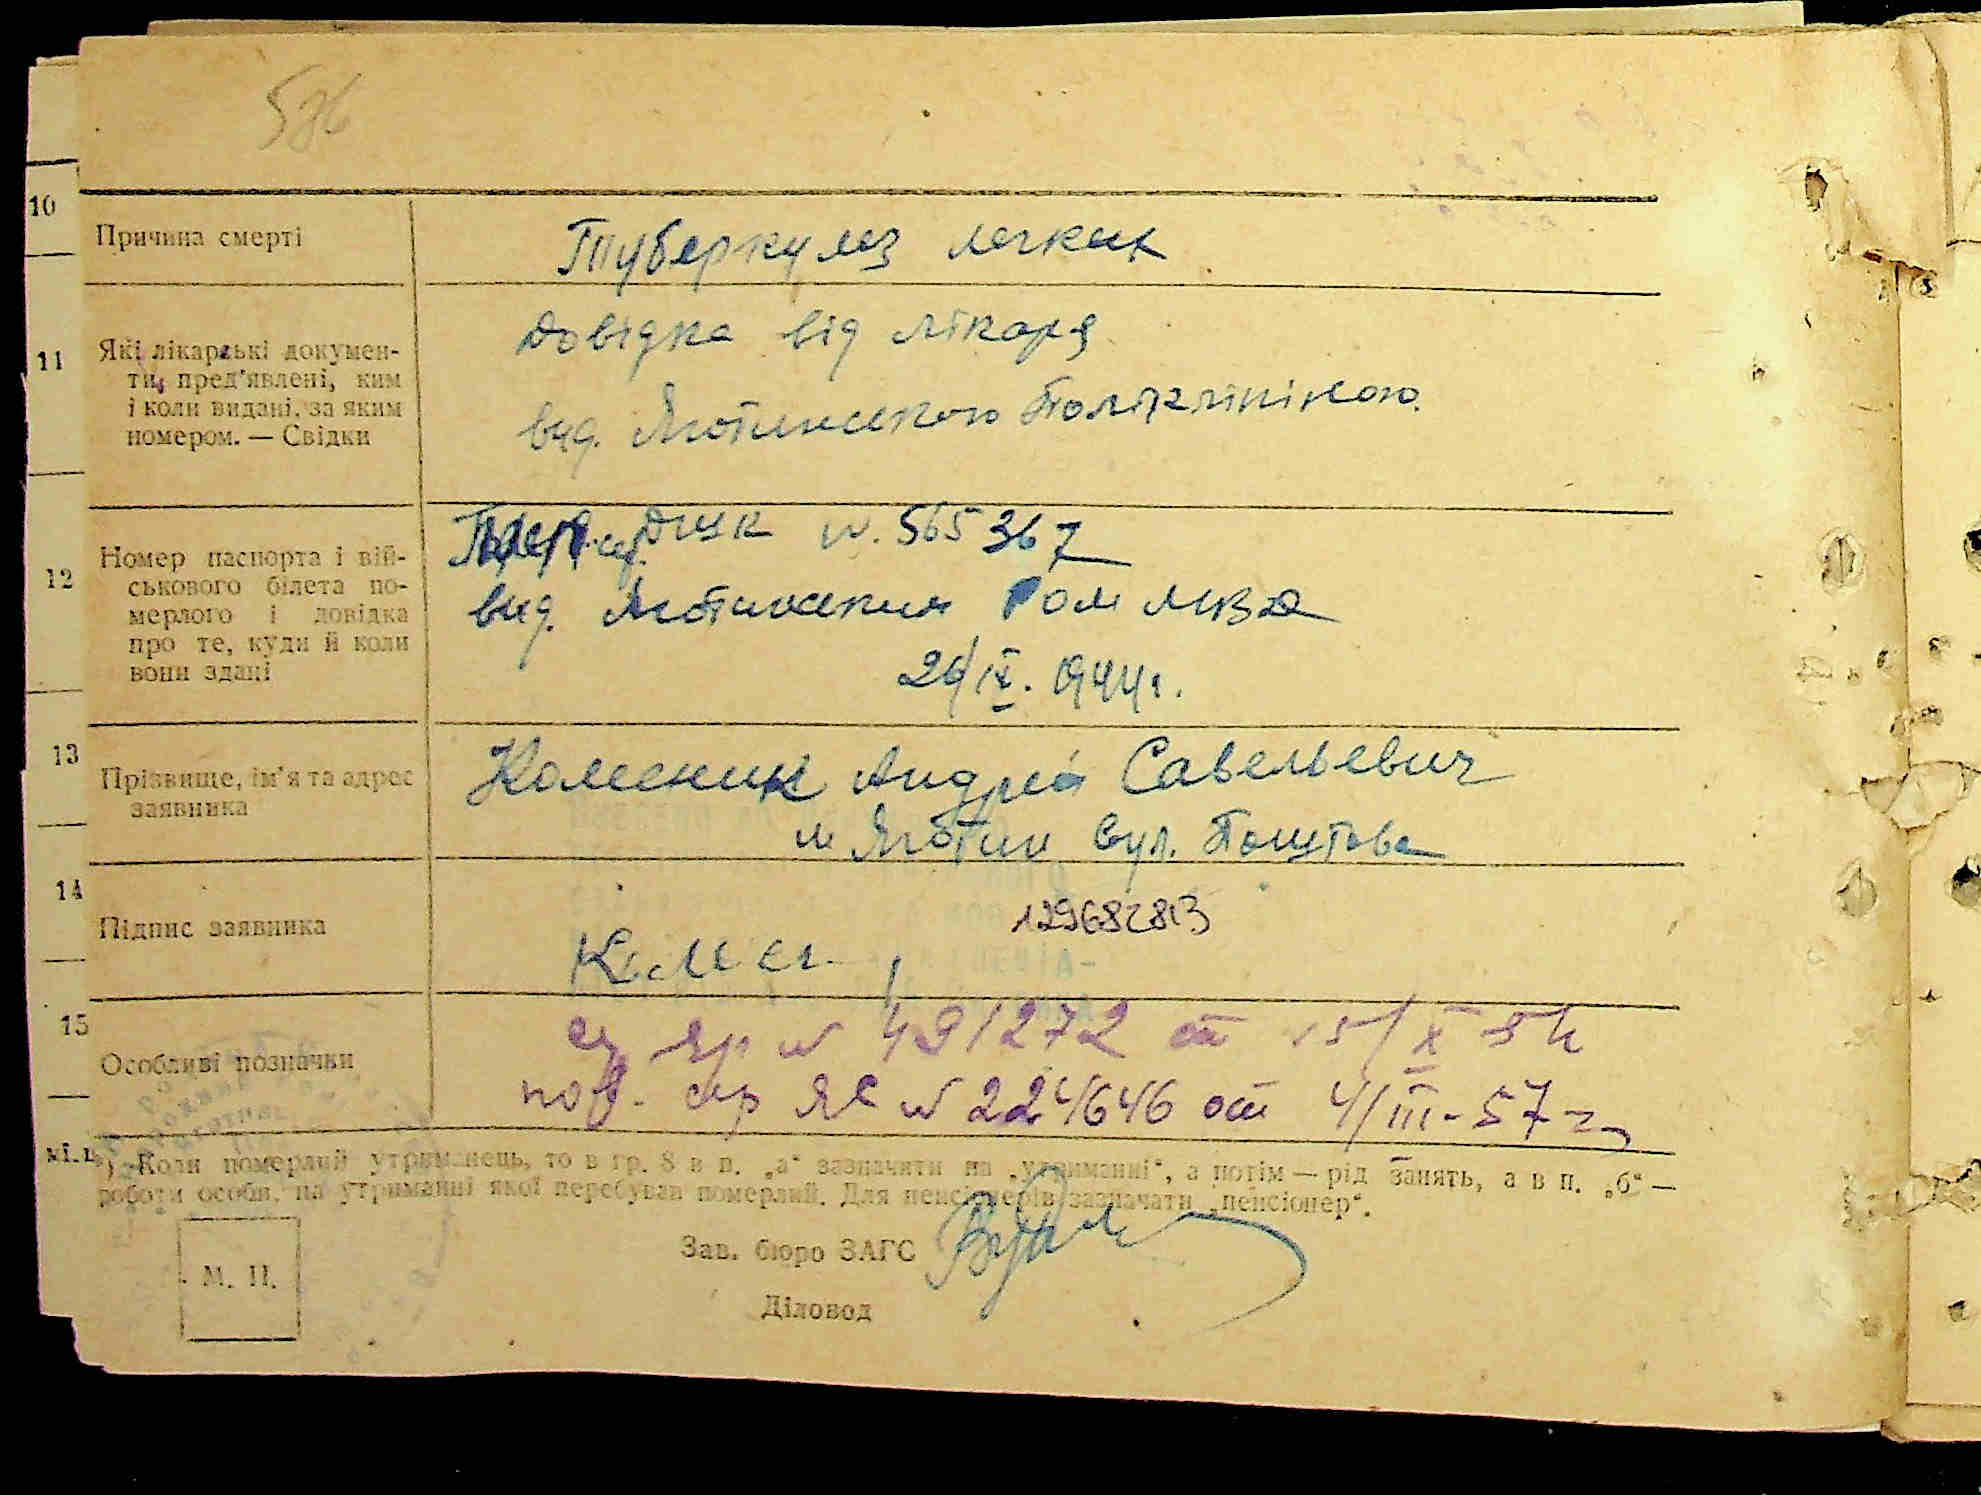 10
Причина смерті
Туберкулез легких
11
Які лікарські докумен-
ти пред'явлені, ким
і коли видані, за яким
номером. — Свідки
Довідка від лікаря
вид. Яготинською Поліклінікою.
12
Номер паспорта і вій-
ськового білета по-
мерлого і довідка
про те, куди й коли
вони здані
№. 565367
вид. Яготинским Ром МВД
26/IX. 1944 г.
13
Прізвище, ім'я та адрес
заявника
Андрей Савельевич
м Яготин вул. Поштова
14
Підпис заявника
12968283
15
Особливі позначки
№ 491272 от 15/X
пов. сер ЯЄ № 224646 от 4/III-57 г
*) Коли померлий утриманець, то в гр. 8 в п. „а“ зазначити на „утриманні“, а потім — рід занять, а в п. „б“ —
роботи особи, на утриманні якої перебував померлий. Для пенсіонерів зазначати „пенсіонер“.
Зав. бюро ЗАГС
М. П.
Діловод